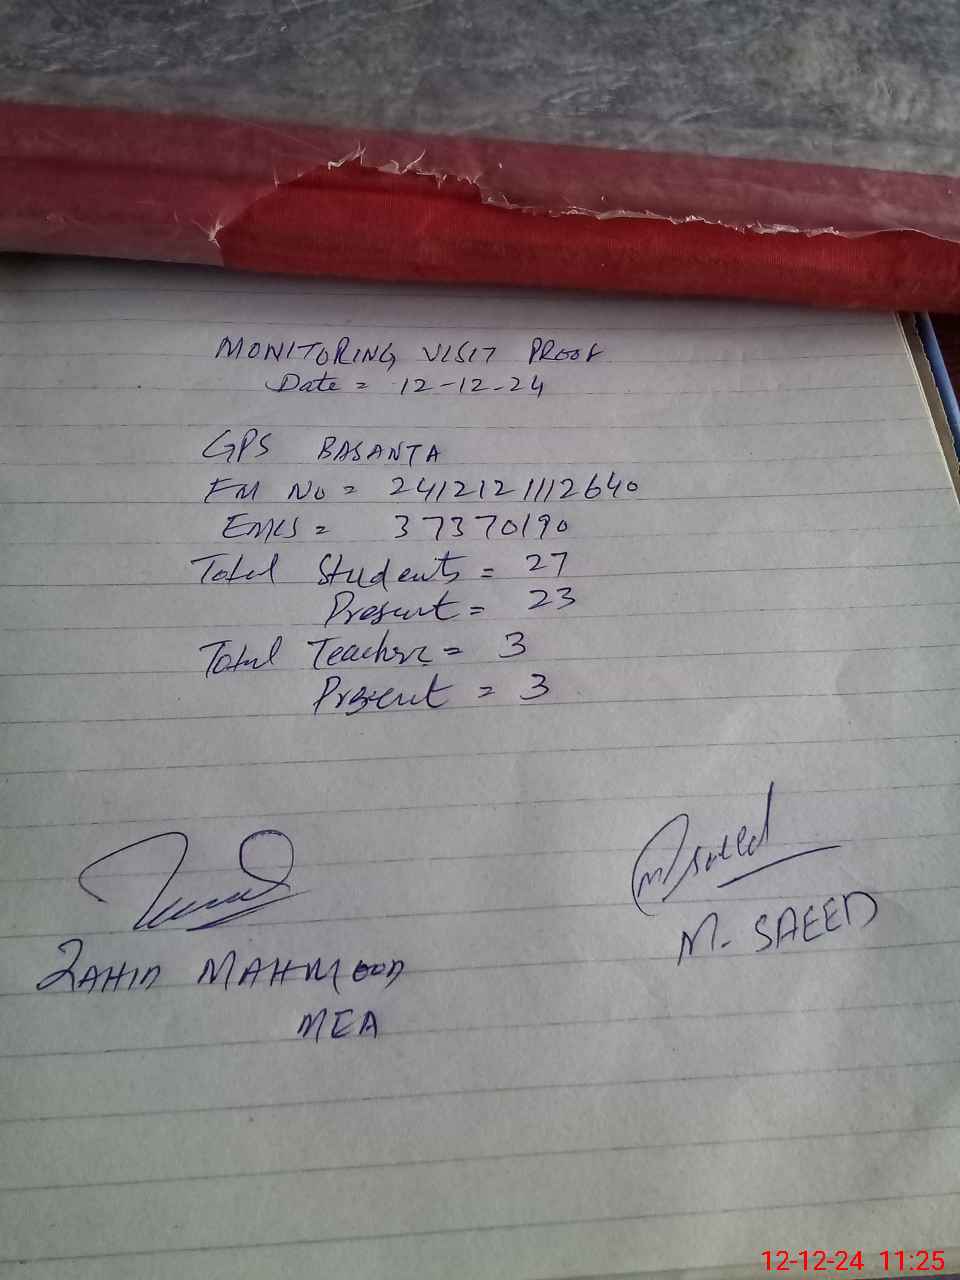 MONITORING VISIT PROOF
Date = 12-12-24
GPS BASANTA
FM No = 2412121112640
EMIS = 37370190
Total Students = 27
Present = 23
Total Teachers = 3
Present = 3
M Saeed
M. SAEED
ZAHID MAHMOOD
MEA
12-12-24 11:25